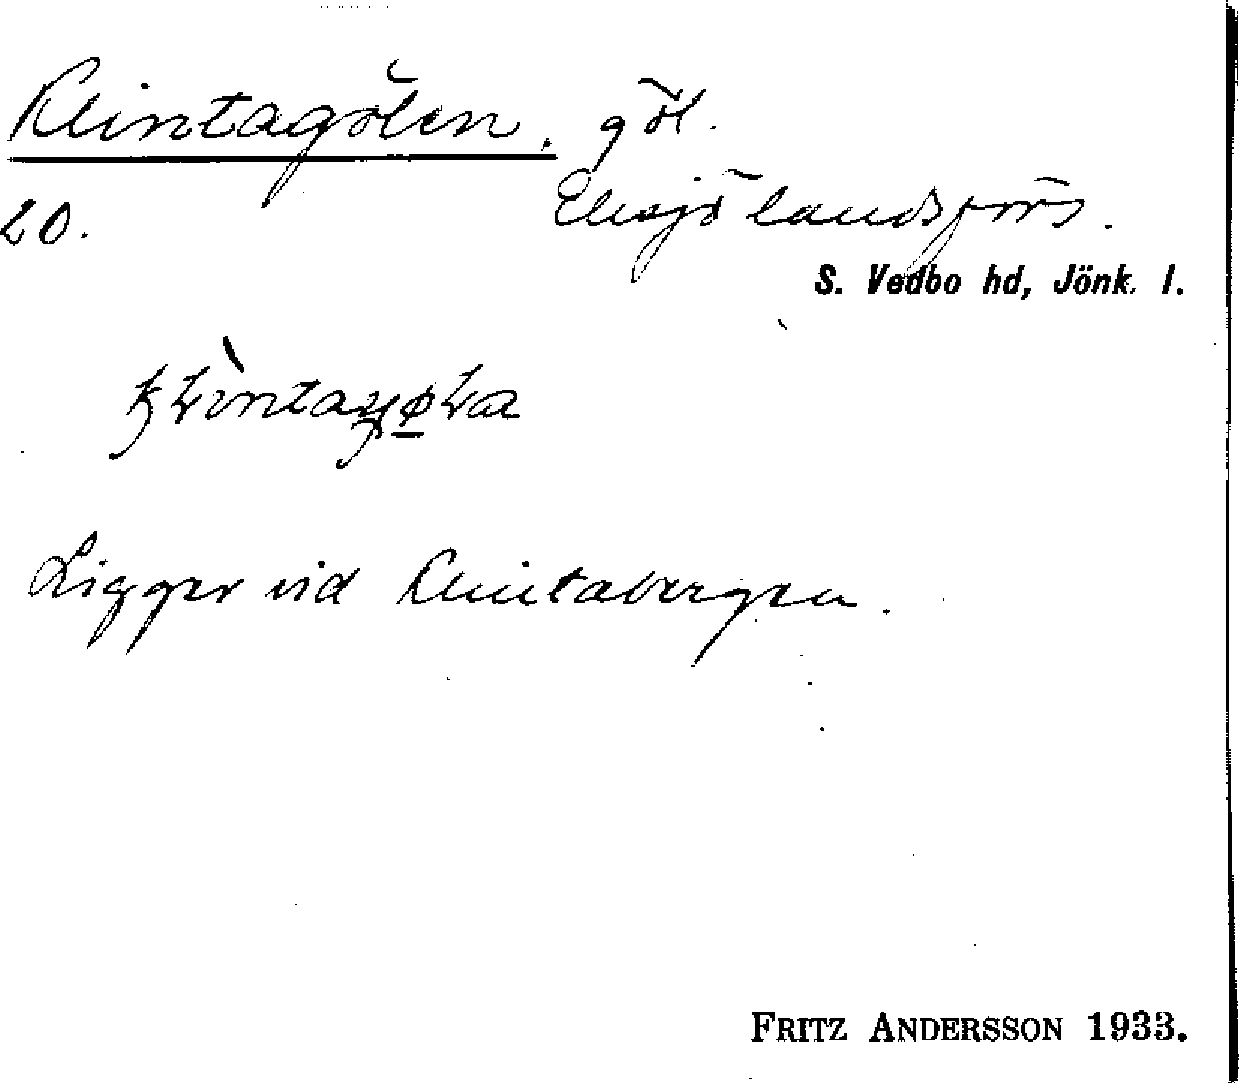 Klintagölen. göl.
20. Eksjö landsförs.
S. Vedbo hd, Jönk. l.
Ligger vid Klintabergen.
FRITZ ANDERSSON 1933.